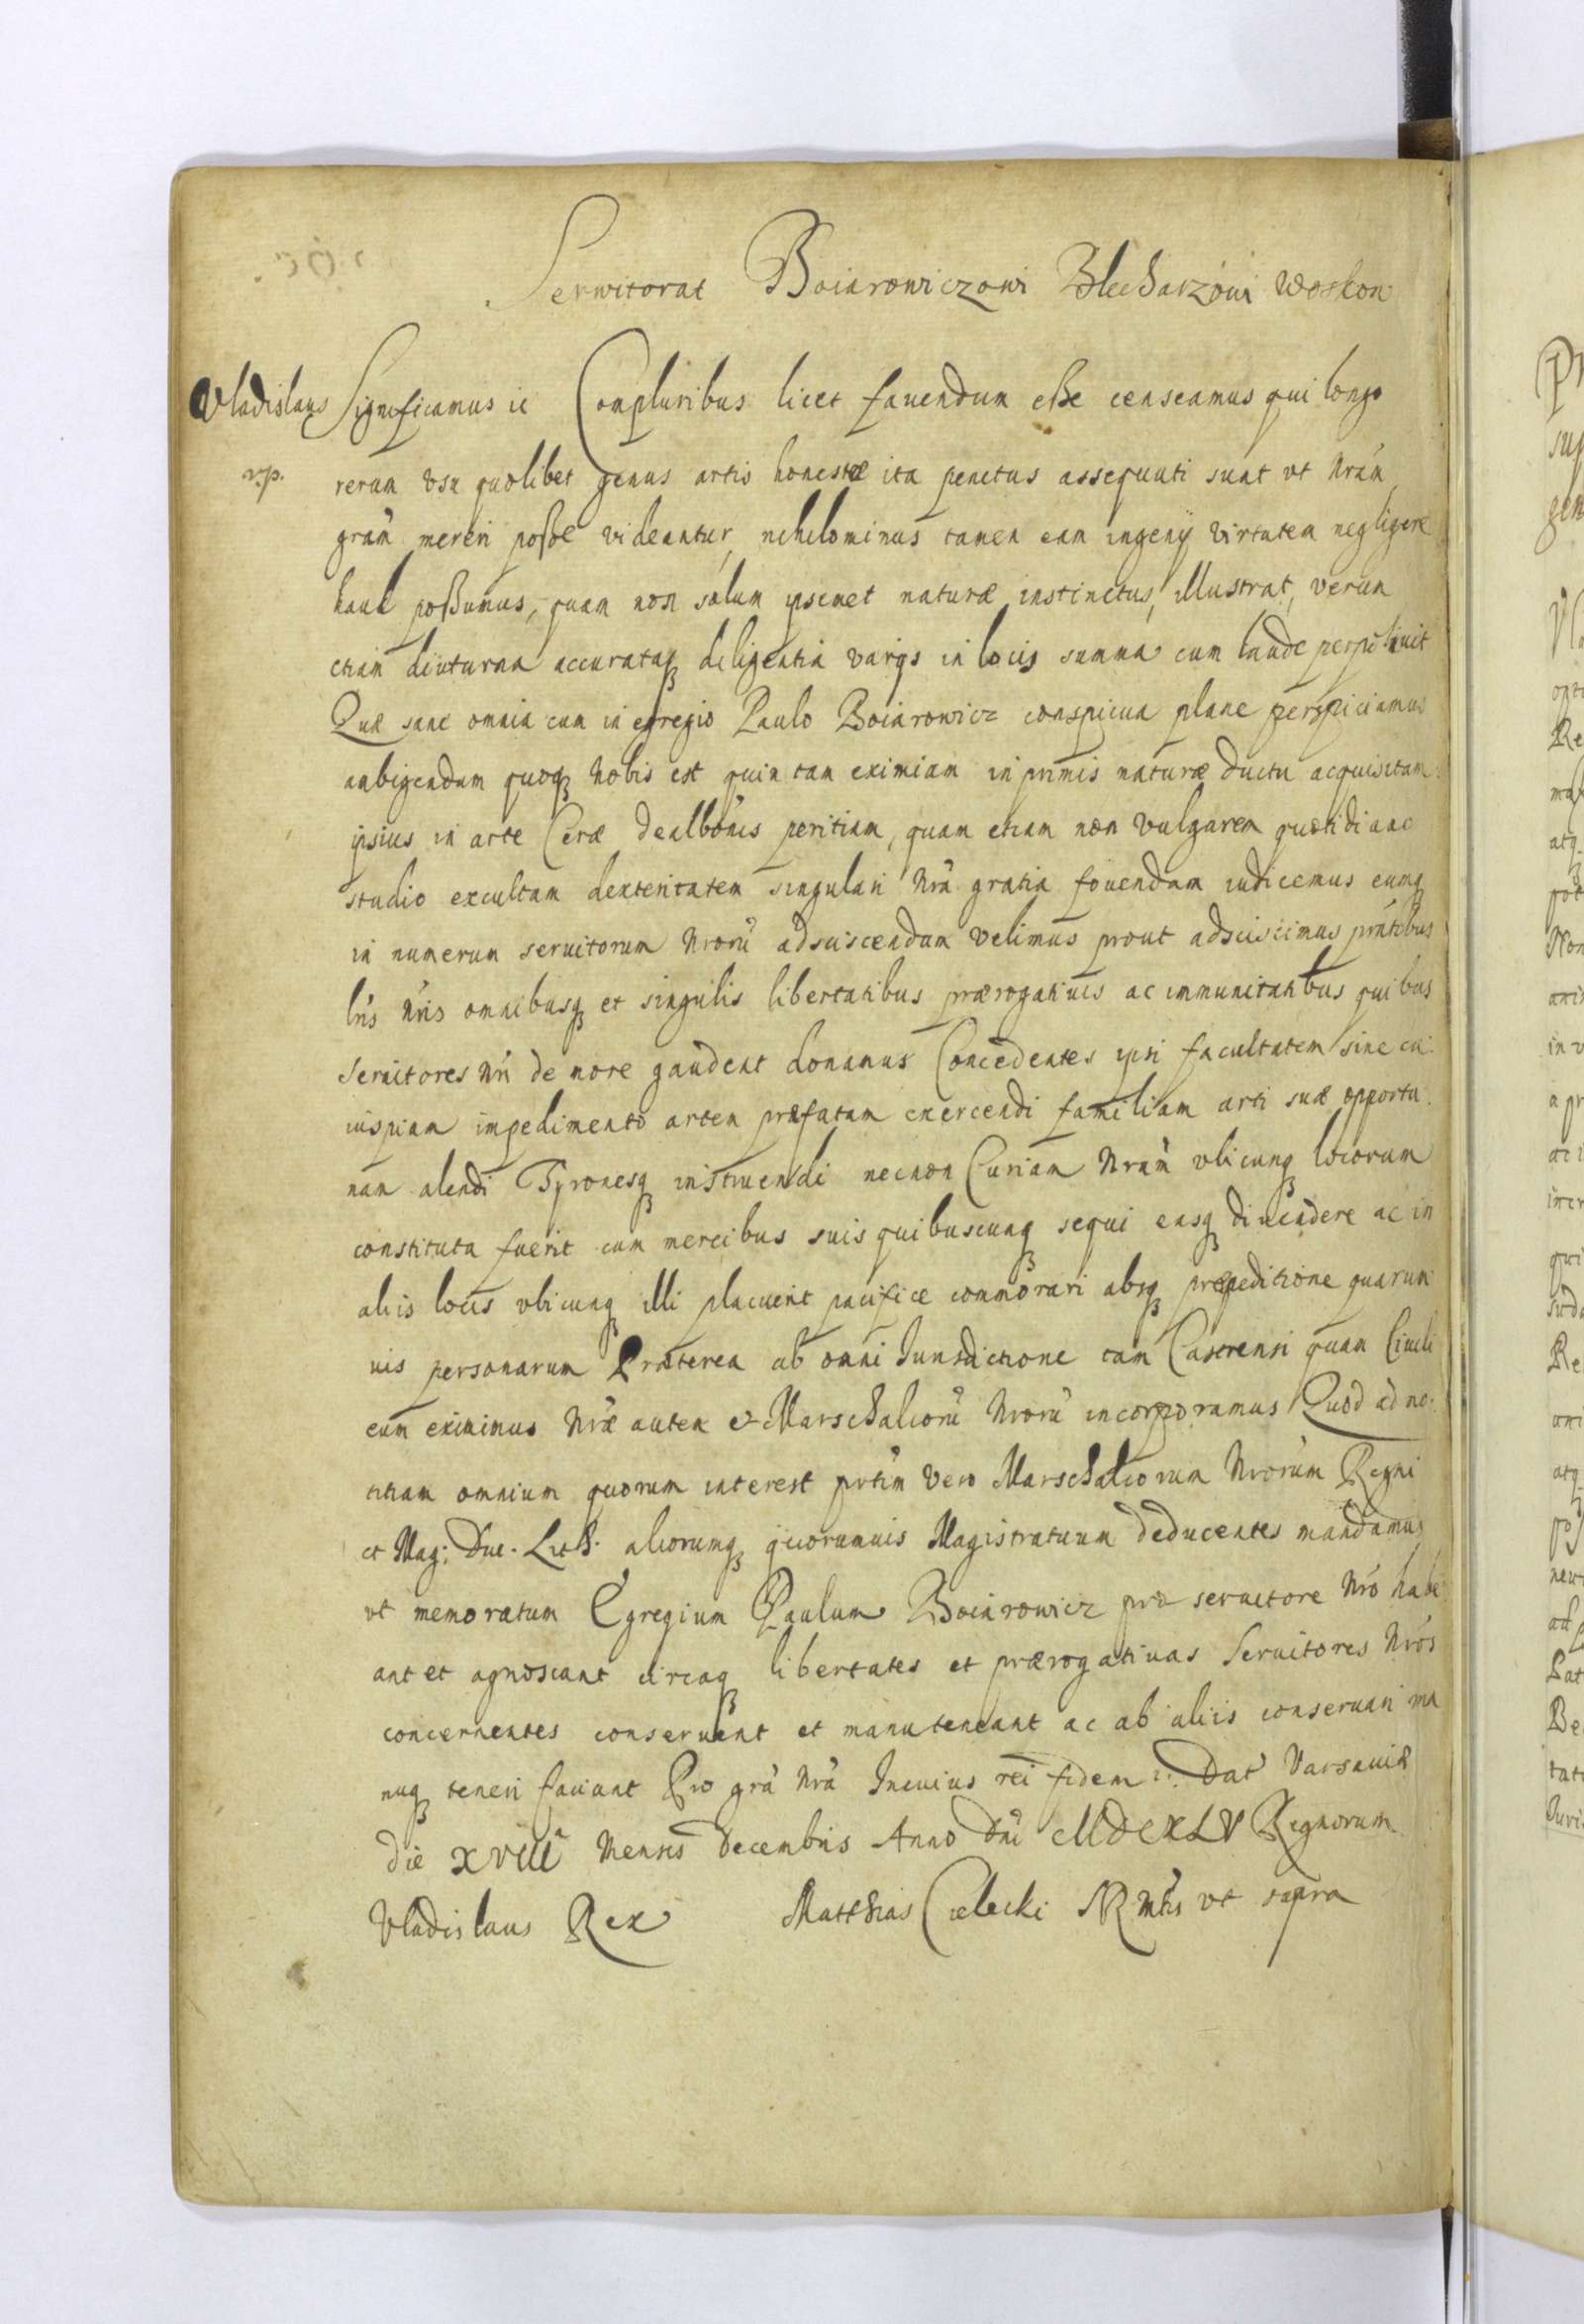 Serwitorat Boiarowiczowi Blecharzowi Woskow
Vladislaus Significamus ic Compluribus licet fauendum eße censeamus qui longo
v.p. rerum vsu quolibet genus artis honestæ ita penitus assequuti sunt vt Nrãm
grãm mereri poße videantur, nihilominus tamen eam ingenÿ virtutem negligere
haud poßumus, quam non solum ipsemet naturæ instinctus, illustrat, verum
etiam diuturna accurataq diligentia varijs in locis summa cum laude perpoliuit
Quæ sane omnia cum in egregio Paulo Boiarowicz conspicua plane perspiciamus
ambigendum quoq Nobis est quin tam eximiam inprimis naturæ ductu acquisitam
ipsius in arte Ceræ dealbõnis peritiam, quam etiam non vulgarem quotidiano
studio excultam dexteritatem singulari Nrã gratia fouendam iudicemus eumq
in numerum seruitorum Nrorũ adsciscendum velimus prout adsciscimus prñtibus
lrĩs Nrĩs omnibusq et singulis libertatibus prærogatiuis ac immunitatibus quibus
Seruitores Nrĩ de more gaudent donamus Concedentes ipsi facultatem sine cu
iuspiam impedimento artem præfatam exercendi familiam arti suæ opportu
nam alendi Tyronesq instruendi necnon Curiam Nrãm vbicunq locorum
constituta fuerit cum mercibus suis quibuscunq sequi easq diuendere ac in
aliis locis vbicunq illi placuerit pacifice commorari absq præpeditione quarum
uis personarum Præterea ab omni Iurisdictione tam Castrensi quam Ciuili
eum eximimus Nræ autem et Marschalcorũ Nrorũ incorporamus Quod ad no
titiam omnium quorum interest prtĩm vero Marschalcorum Nrorum Regni
et Mag: Duc. Lith. aliorumq quorumuis Magistratuum deducentes mandamus
vt memoratum Egregium Paulum Boiarowicz pro seruitore Nro habe
ant et agnoscant circaq libertates et prærogatiuas Seruitores Nros
concernentes conseruent et manuteneant ac ab aliis conseruari ma
nuq teneri faciant Pro grã Nrã Incuius rei fidem ic. Dat Varsauiæ
die XVIII Mensis Decembris Anno Dnĩ MDCXLV Regnorum
Vladislaus Rex Matthias Cielecki SRMtis vt supra